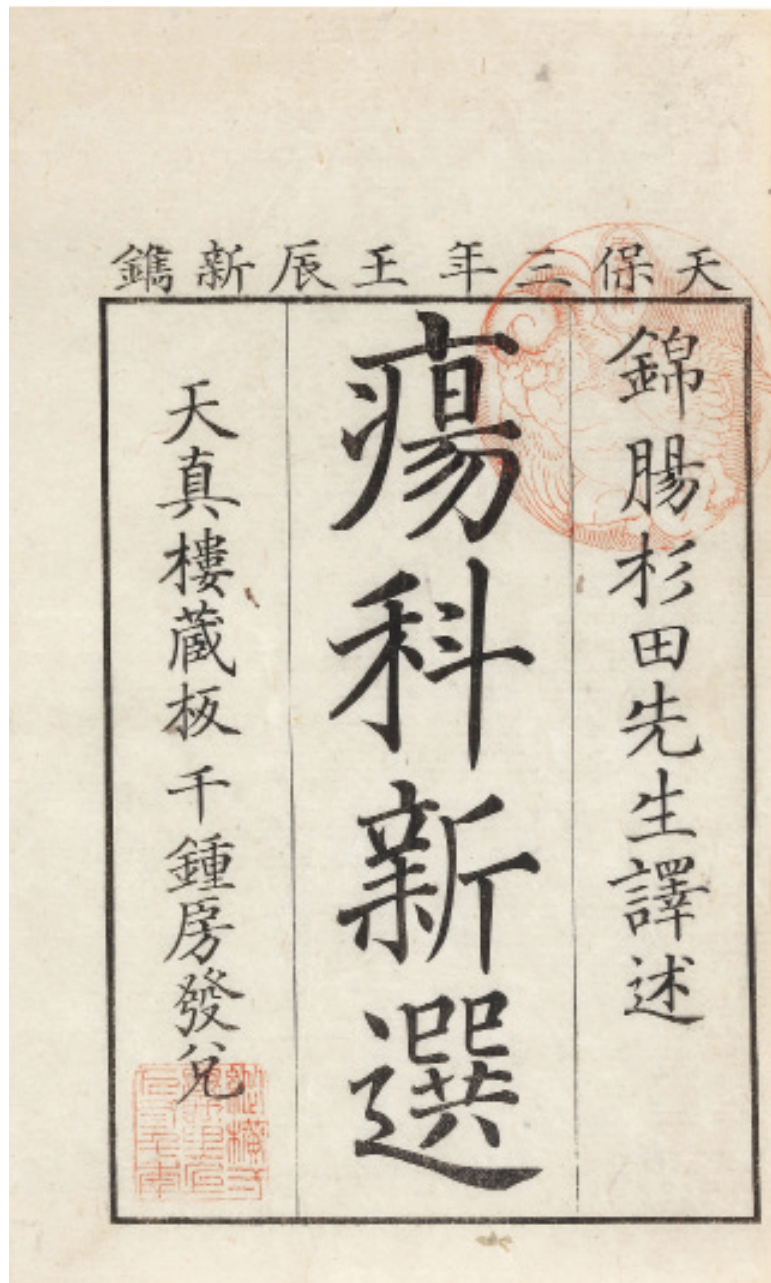 天保三年壬辰新鐫
錦腸杉田先生譯述
瘍科新選
天真樓藏板 千鍾房發兌